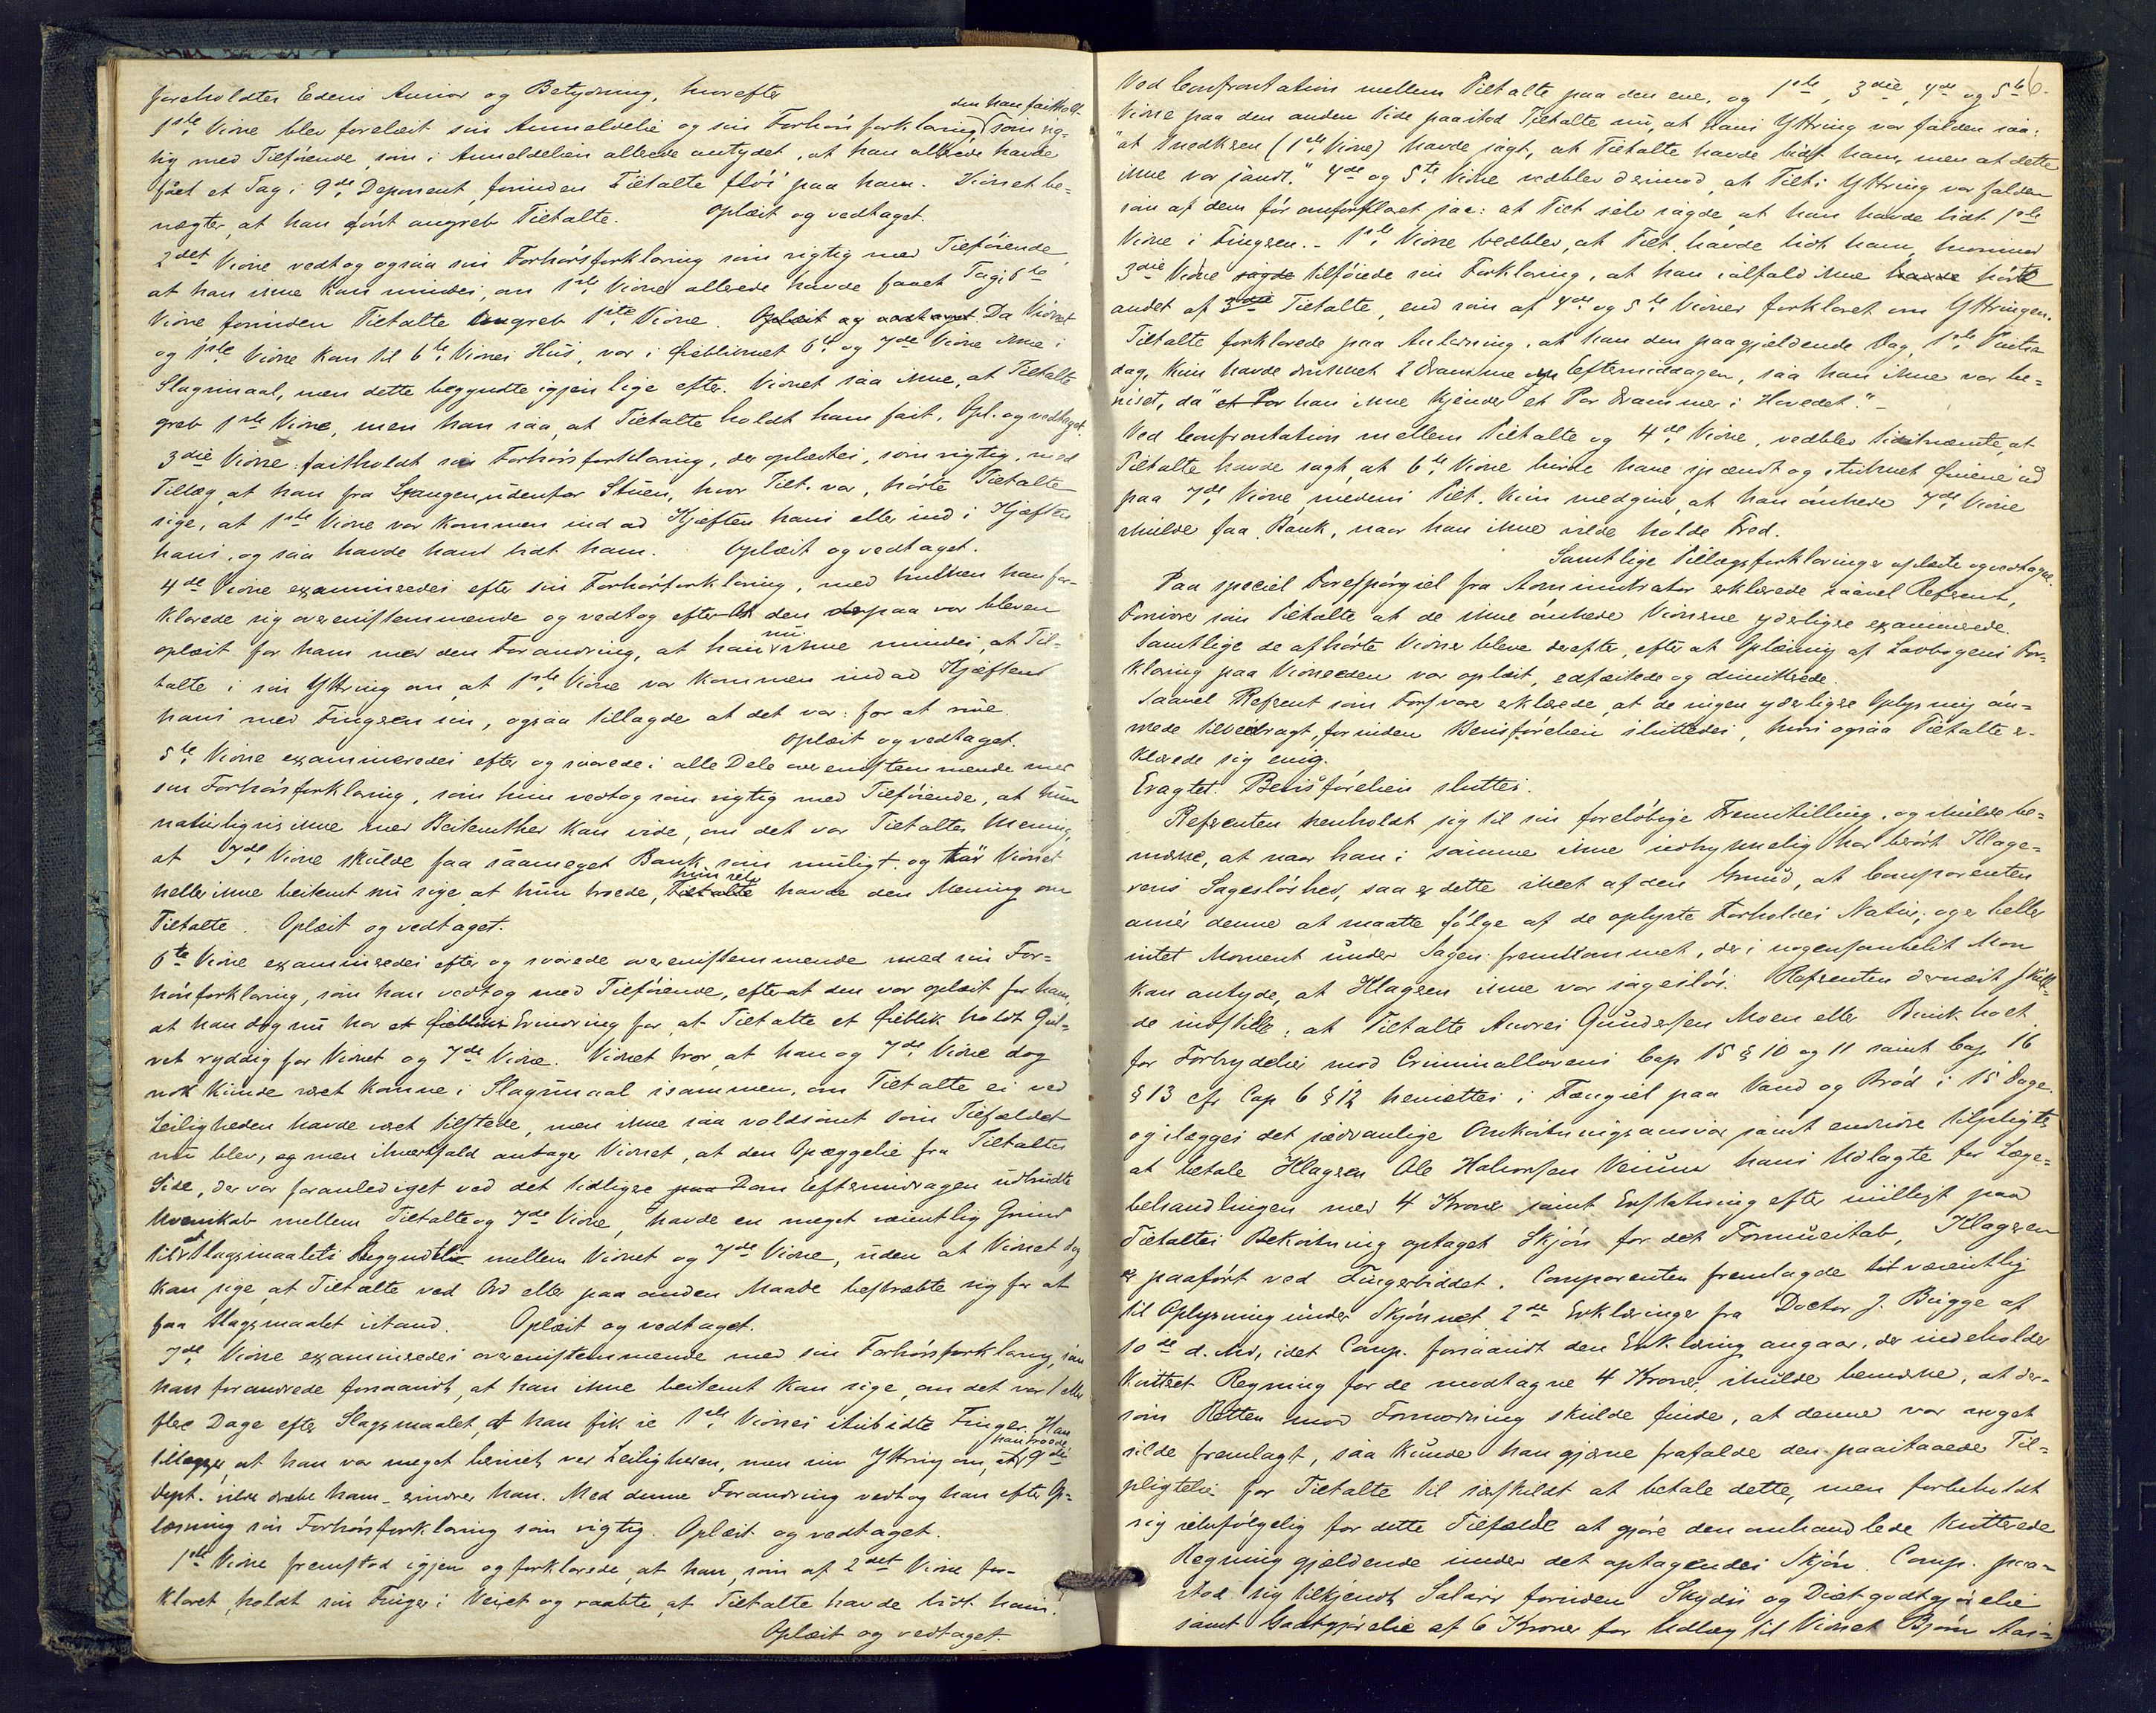 foreholdtes Edens Ansvar og Betydning, hvorefter
den han fastholdt
1ste Vidne blev forelæst sin Anmeldelse og sin Forhørsforklaring som rig-
tig med Tilføiende som i Anmeldelsen allerede antydet, at han allerede havde
faaet et Tag i 9de Deponent, forinden Tiltalte fløi paa ham. Vidnet be-
nægter, at han først angreb Tiltalte. Oplæst og vedtaget.
2det Vidne vedtog ogsaa sin Forhørsforklaring som rigtig med Tilføiende,
at han ikke kan mindes, om 1ste Vidne allerede havde faaet Tag i 6te
Vidne forinden Tiltalte angreb 1ste Vidne. Oplæst og vedtaget Da Vidnet
og 1ste Vidne kom til 6te Vidnes Hus, var i Øieblikket 6te og 7de Vidne ikke i
Slagsmaal, men dette begyndte igjen lige efter. Vidnet saa ikke, at Tiltalte
greb 1ste Vidne, men han saa, at Tiltalte holdt ham fast. Opl. og vedtaget.
3die Vidne fastholdt sin Forhørsforklaring, der oplæstes, som rigtig, med
Tillæg, at han fra Gangen udenfor Stuen, hvor Tilt. var, hørte Tiltalte
sige, at 1ste Vidne var kommen ind ad Kjæften hans eller ind i Kjæften
hans, og saa havde hans bidt ham. Oplæst og vedtaget.
4de Vidne examineredes efter sin Forhørsforklaring, med hvilken han for-
klarede sig overensstemmende og vedtog efterat den derpaa var bleven
oplæst for ham med den Forandring, at han nu ikke mindes, at Til-
talte i sin Yttring om, at 1ste Vidne var kommen ind ad Kjæften
hans med Fingeren sin, ogsaa tillagde at det var: for at rive.
Oplæst og vedtaget.
5te Vidne examineredes efter og svarede i alle Dele overensstemmende med
sin Forhørsforklaring, som hun vedtog som rigtig med Tilføiende, at hun
naturligvis ikke med Bestemthed kan vide, om det var Tiltaltes Mening,
at 7de Vidne skulde faa saameget Bank som muligt og tør Vidnet
heller ikke bestemt nu sige at hun troede, Tiltalte hun selv havde den Mening om
Tiltalte. Oplæst og vedtaget.
6te Vidne examineredes efter og svarede overensstemmende med sin For-
hørsforklaring, som han vedtog med Tilføiende, efterat den var oplæst for ham,
at han dog nu har et Øiebliks Erindring for, at Tiltalte et Øieblik holdt Gul-
vet ryddig for Vidnet og 7de Vidne. Vidnet tror, at han og 7de Vidne dog
nok kunde været komne i Slagsmaal isammen, om Tiltalte ei ved
Leiligheden havde været tilstede, men ikke saa voldsomt som Tilfældet
nu blev, og men ihvertfald antager Vidnet, at den Opæggelse fra Tiltaltes
Side, der var foranlediget ved det tidligere paa Dom Eftermiddagen udbrudte
Uvenskab mellem Tiltalte og 7de Vidne, havde en meget væsentlig Grund
til at Slagsmaalets Begyndtes mellem Vidnet og 7de Vidne, uden at Vidnet dog
kan sige, at Tiltalte ved Ord eller paa anden Maade bestræbte sig for at
faa Slagsmaalet istand. Oplæst og vedtaget.
7de Vidne examineredes overensstemmende med sin Forhørsforklaring, som
han forandrede forsaavidt, at han ikke bestemt kan sige, om det var 1 eller
flere Dage efter Slagsmaalet, at han fik se 1ste Vidnes stubidte Finger. Han
tillægger, at han var meget beruset ved Leiligheden, men sin Yttring om, at han troede 9de
Dept. vilde dræbe ham erindrer han. Med denne Forandring vedtog han efter Op-
læsning sin Forhørsforklaring som rigtig. Oplæst og vedtaget.
1ste Vidne fremstod igjen og forklarede, at han, som af 2det Vidne for-
klaret, holdt sin Finger i Veiret og raabte, at Tiltalte havde bidt ham.
Oplæst og vedtaget.
6.
Ved Confrontation mellem Tiltalte paa den ene, og 1ste, 3die, 4de og 5te
Vidne paa den anden Side paastod Tiltalte nu, at hans Yttring var falden saa:
"at Knedksen (1ste Vidne) havde sagt, at Tiltalte havde bidt ham, men at dette
ikke var sandt." 4de og 5te Vidne vedblev derimod, at Tilts Yttring var falden
som af dem før omforklaret saa: at Tilt selv sagde, at han havde bidt 1ste
Vidne i Fingeren. - 1ste Vidne vedblev, at Tilt. havde bidt ham, hvorimod
3die Vidne sagde tilføiede sin Forklaring, at han ialfald ikke havde hørte
andet af 3die Tiltalte, end som af 4de og 5te Vidner forklaret om Yttringen.
Tiltalte forklarede paa Anledning, at han den paagjældende Dag, 1ste Pintse-
dag, kun havde drukket 2 Dramme om Eftermiddagen, saa han ikke var be-
ruset, da "et Par han ikke kjender et Par Drammer i Hovedet." -
Ved Confrontation mellem Tiltalte og 4de Vidne, vedblev Sidstnævnte, at
Tiltalte havde sagt, at 6te Vidne burde have spændt og stukket Øinene ud
paa 7de Vidne, medens Tilt. kun medgiver, at han ønskede 7de Vidne
skulde faa Bank, naar han ikke vilde holde Fred.
Samtlige Tillægsforklaringer oplæste og vedtagne.
Paa speciel Forespørgsel fra Administrator erklærede saavel Refsent,
Forsvarer som Tiltalte at de ikke ønskede Vidnerne yderligere examinerede.
Samtlige de afhørte Vidner bleve derefter, efter at Oplæsning af Lovbogens For-
klaring paa Vidneeden var oplæst, edfæstede og dimitterede.
Saavel Refsent som Forsvarer erklærede, at de ingen yderligere Oplysning øn-
skede tilveiebragt, forinden Bevisførelsen sluttedes, hvori ogsaa Tiltalte er-
klærede sig enig.
Eragtet. Bevisførelsen sluttes.
Refsenten henholdt sig til sin foreløbige Fremstilling, og skulde be-
mærke, at naar han i samme ikke udtrykkelig har berørt Klage-
rens Sagesløshed, saa er dette skeet af den Grund, at Comparenten
ansér denne at maatte følge af de oplyste Forholdes Natur; og er heller
intet Moment under Sagen fremkommet, der i nogensomhelst Mon
kan antyde, at Klageren ikke var sagesløs. Refsenten dernæst skul-
de indstille, at Tiltalte Andres Gundersen Moen eller Binkholt
for Forbrydelse mod Criminallovens Cap 15 § 10 og 11 samt Cap 16
§ 13 cfr Cap 6 § 12 hensættes i Fængsel paa Vand og Brød i 15 Dage
og ilægges det sædvanlige Omkostningsansvar samt endvidre tilpligtes
at betale Klageren Ole Halvorsen Veium hans Udlagte for Læge-
behandlingen med 4 Kroner samt Erstatning efter uvilligt paa
Tiltaltes Bekostning optaget Skjøn for det Formuestab, Klageren
er paaført ved Fingerbiddet. Comparenten fremlagde til væsentlig
til Oplysning under Skjønnet 2de Erklæringer fra Doctor J. Bugge af
10de d. Md, idet Comp. forsaavidt den Erklæring angaar, der indeholder
kvitteret Regning for de modtagne 4 Kroner, skulde bemærke, at der-
som Retten mod Formodning skulde finde, at denne var meget
silde fremlagt, saa kunde han gjerne frafalde den paastaaede Til-
pligtelse for Tiltalte til særskildt at betale dette, men forbeholdt
sig selvfølgelig for dette Tilfælde at gjøre den omhandlede kvitterede
Regning gjældende under det optagendes Skjøn. Comp. paa-
stod sig tilkjendt Salair foruden Skyds og Diætgodtgjørelse
samt Godtgjørelse af 6 Kroner for Udlæg til Vidnet Bjørn Aas-